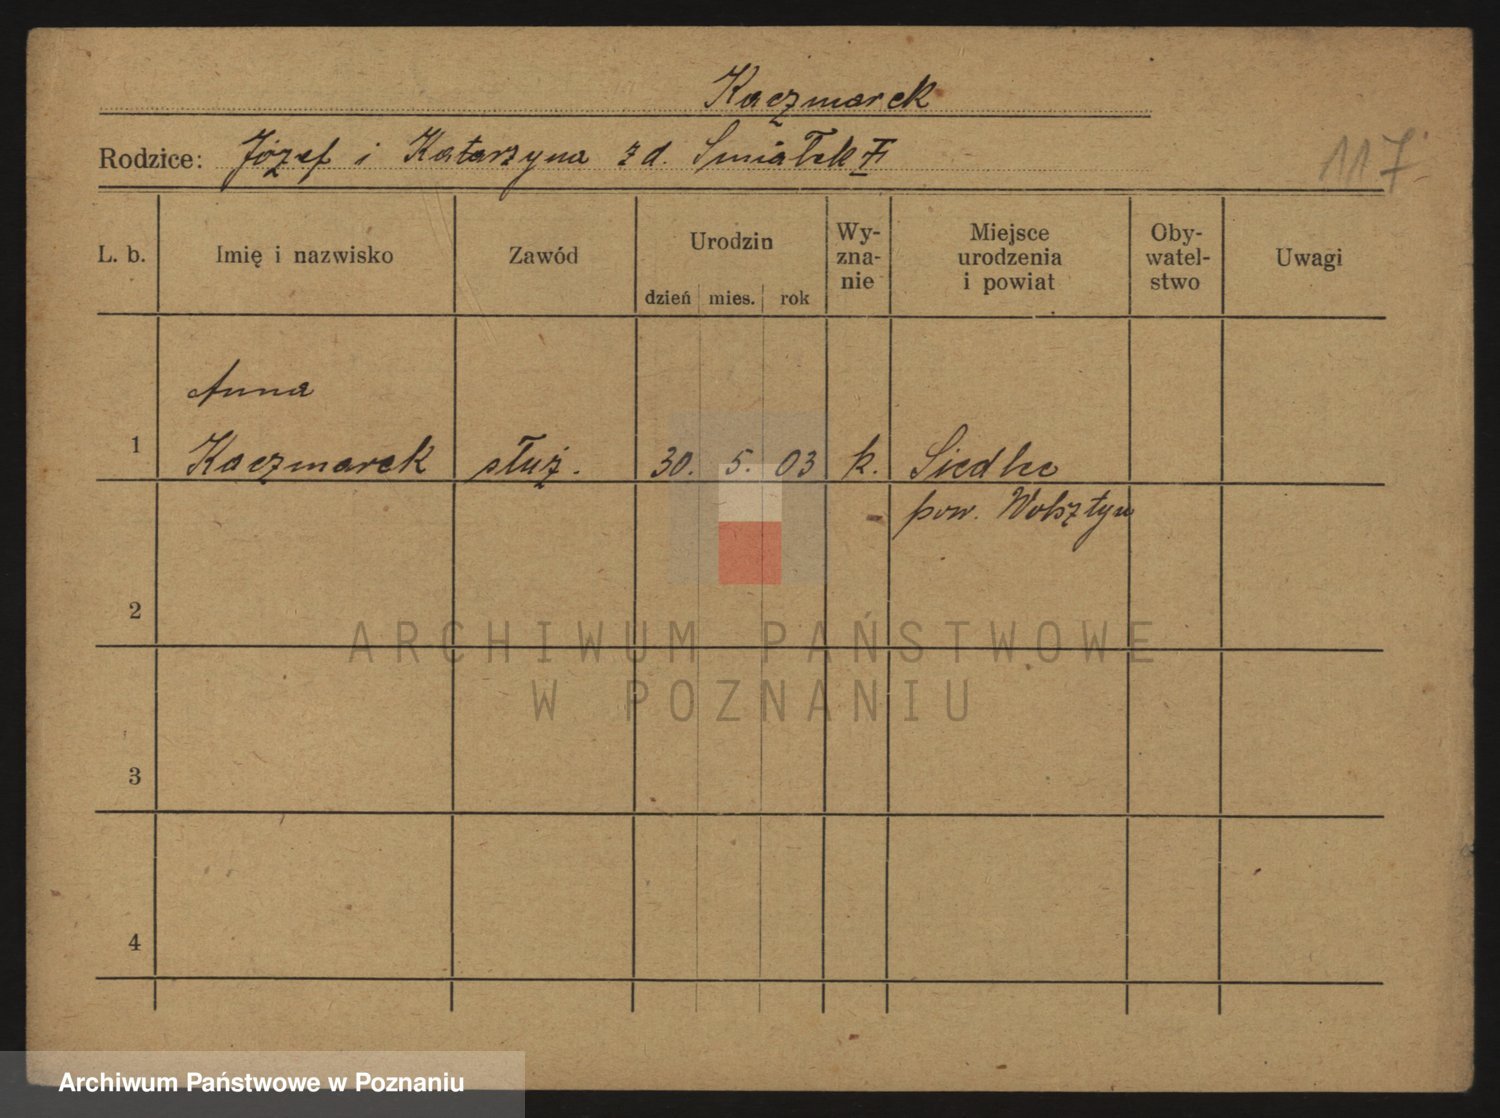 Kaczmarek
Rodzice: Józef i Katarzyna z d. Smiałek
117
L. b. Imię i nazwisko Zawód Urodzin dzień mies. rok Wy-zna-nie Miejsce urodzenia i powiat Oby-watel-stwo Uwagi
Anna
1 Kaczmarek służ. 30. 5. 03 k. Siedlec
pow. Wolsztyn
2
ARCHIWUM PAŃSTWOWE
W POZNANIU
3
4
Archiwum Państwowe w Poznaniu